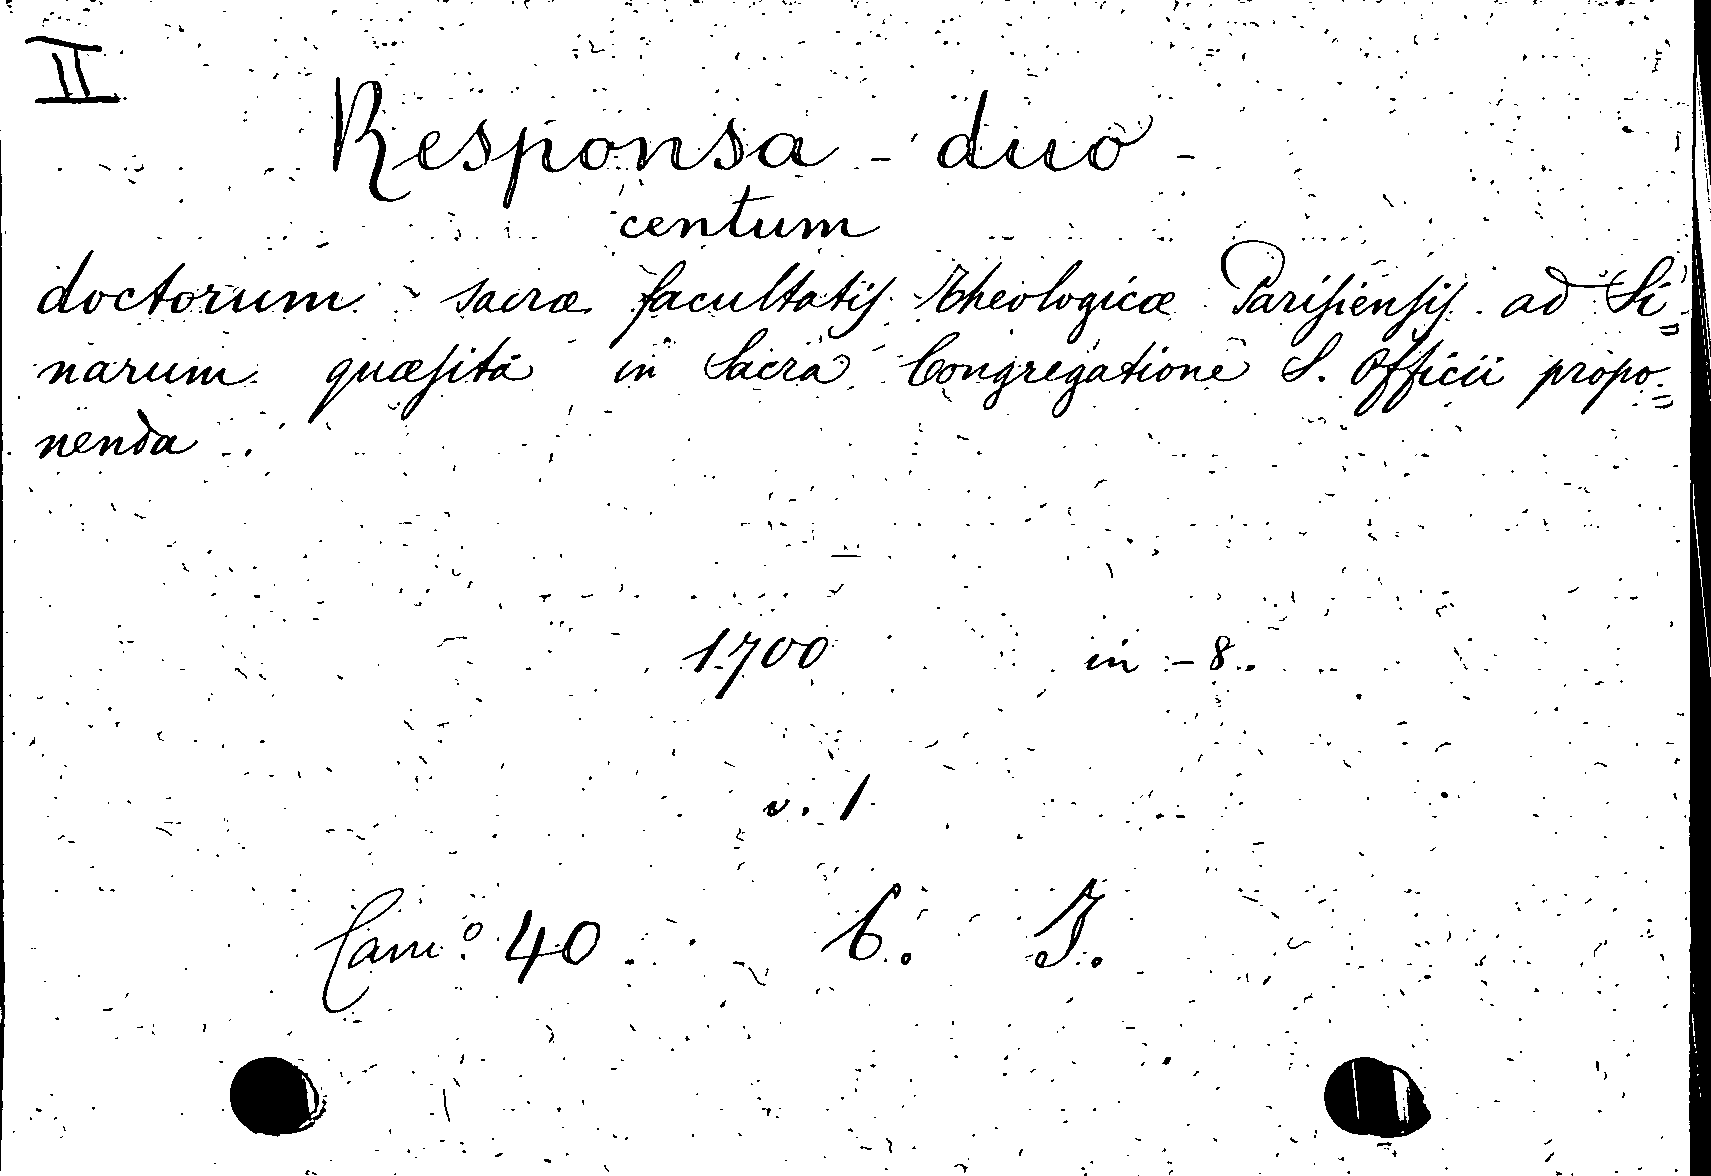 II
Responsa - duo -
centum
doctorum sacræ facultatis theologicæ Parisiensis ad Si=
narum quæsita in Sacra Congregatione S. Officii propo=
nenda.
1700 in - 8.
v. 1
Cam.º 40. 6. J.